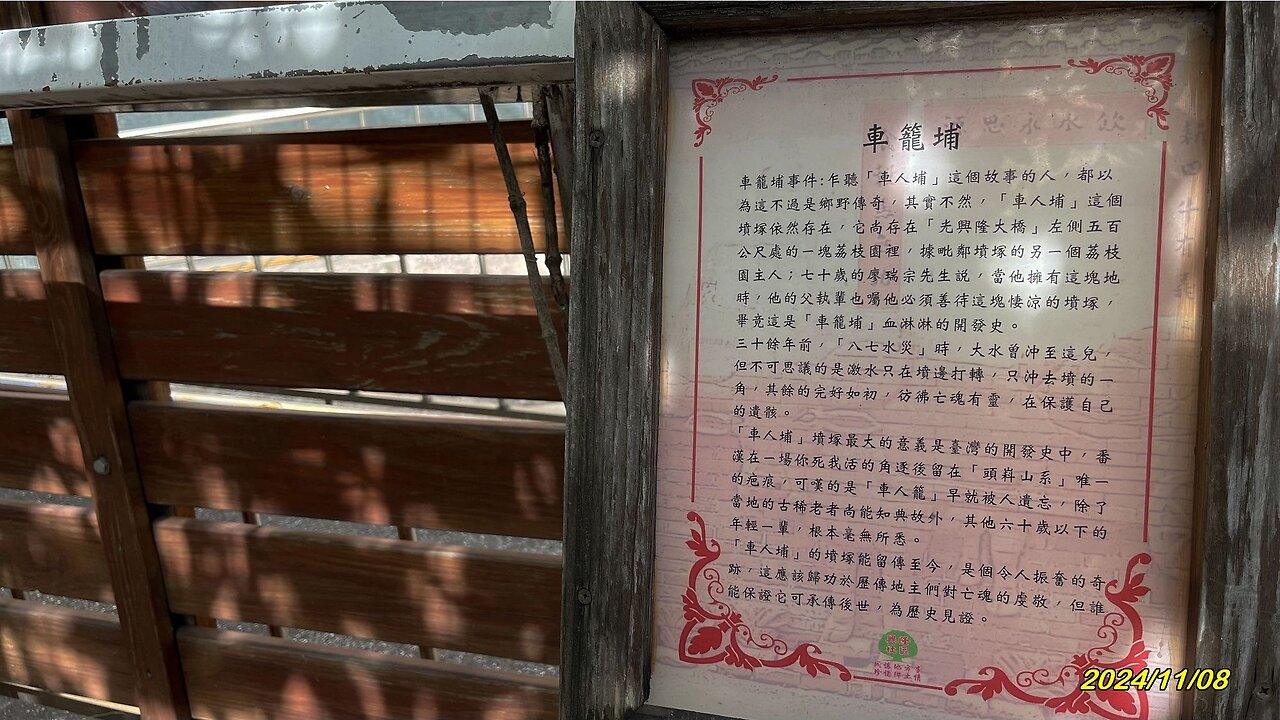 車籠埔
車籠埔事件:乍聽「車人埔」這個故事的人，都以
為這不過是鄉野傳奇，其實不然，「車人埔」這個
墳塚依然存在，它尚存在「光興隆大橋」左側五百
公尺處的一塊荔枝園裡，據毗鄰墳塚的另一個荔枝
園主人；七十歲的廖瑞宗先生說，當他擁有這塊地
時，他的父執輩也囑他必須善待這塊悽涼的墳塚，
畢竟這是「車籠埔」血淋淋的開發史。
三十餘年前，「八七水災」時，大水曾沖至這兒，
但不可思議的是激水只在墳邊打轉，只沖去墳的一
角，其餘的完好如初，彷彿亡魂有靈，在保護自己
的遺骸。
「車人埔」墳塚最大的意義是臺灣的開發史中，番
漢在一場你死我活的角逐後留在「頭嵙山系」唯一
的疤痕，可嘆的是「車人籠」早就被人遺忘，除了
當地的古稀老者尚能知典故外，其他六十歲以下的
年輕一輩，根本毫無所悉。
「車人埔」的墳塚能留傳至今，是個令人振奮的奇
跡，這應該歸功於歷傳地主們對亡魂的虔敬，但誰
能保證它可承傳後世，為歷史見證。
2024/11/08